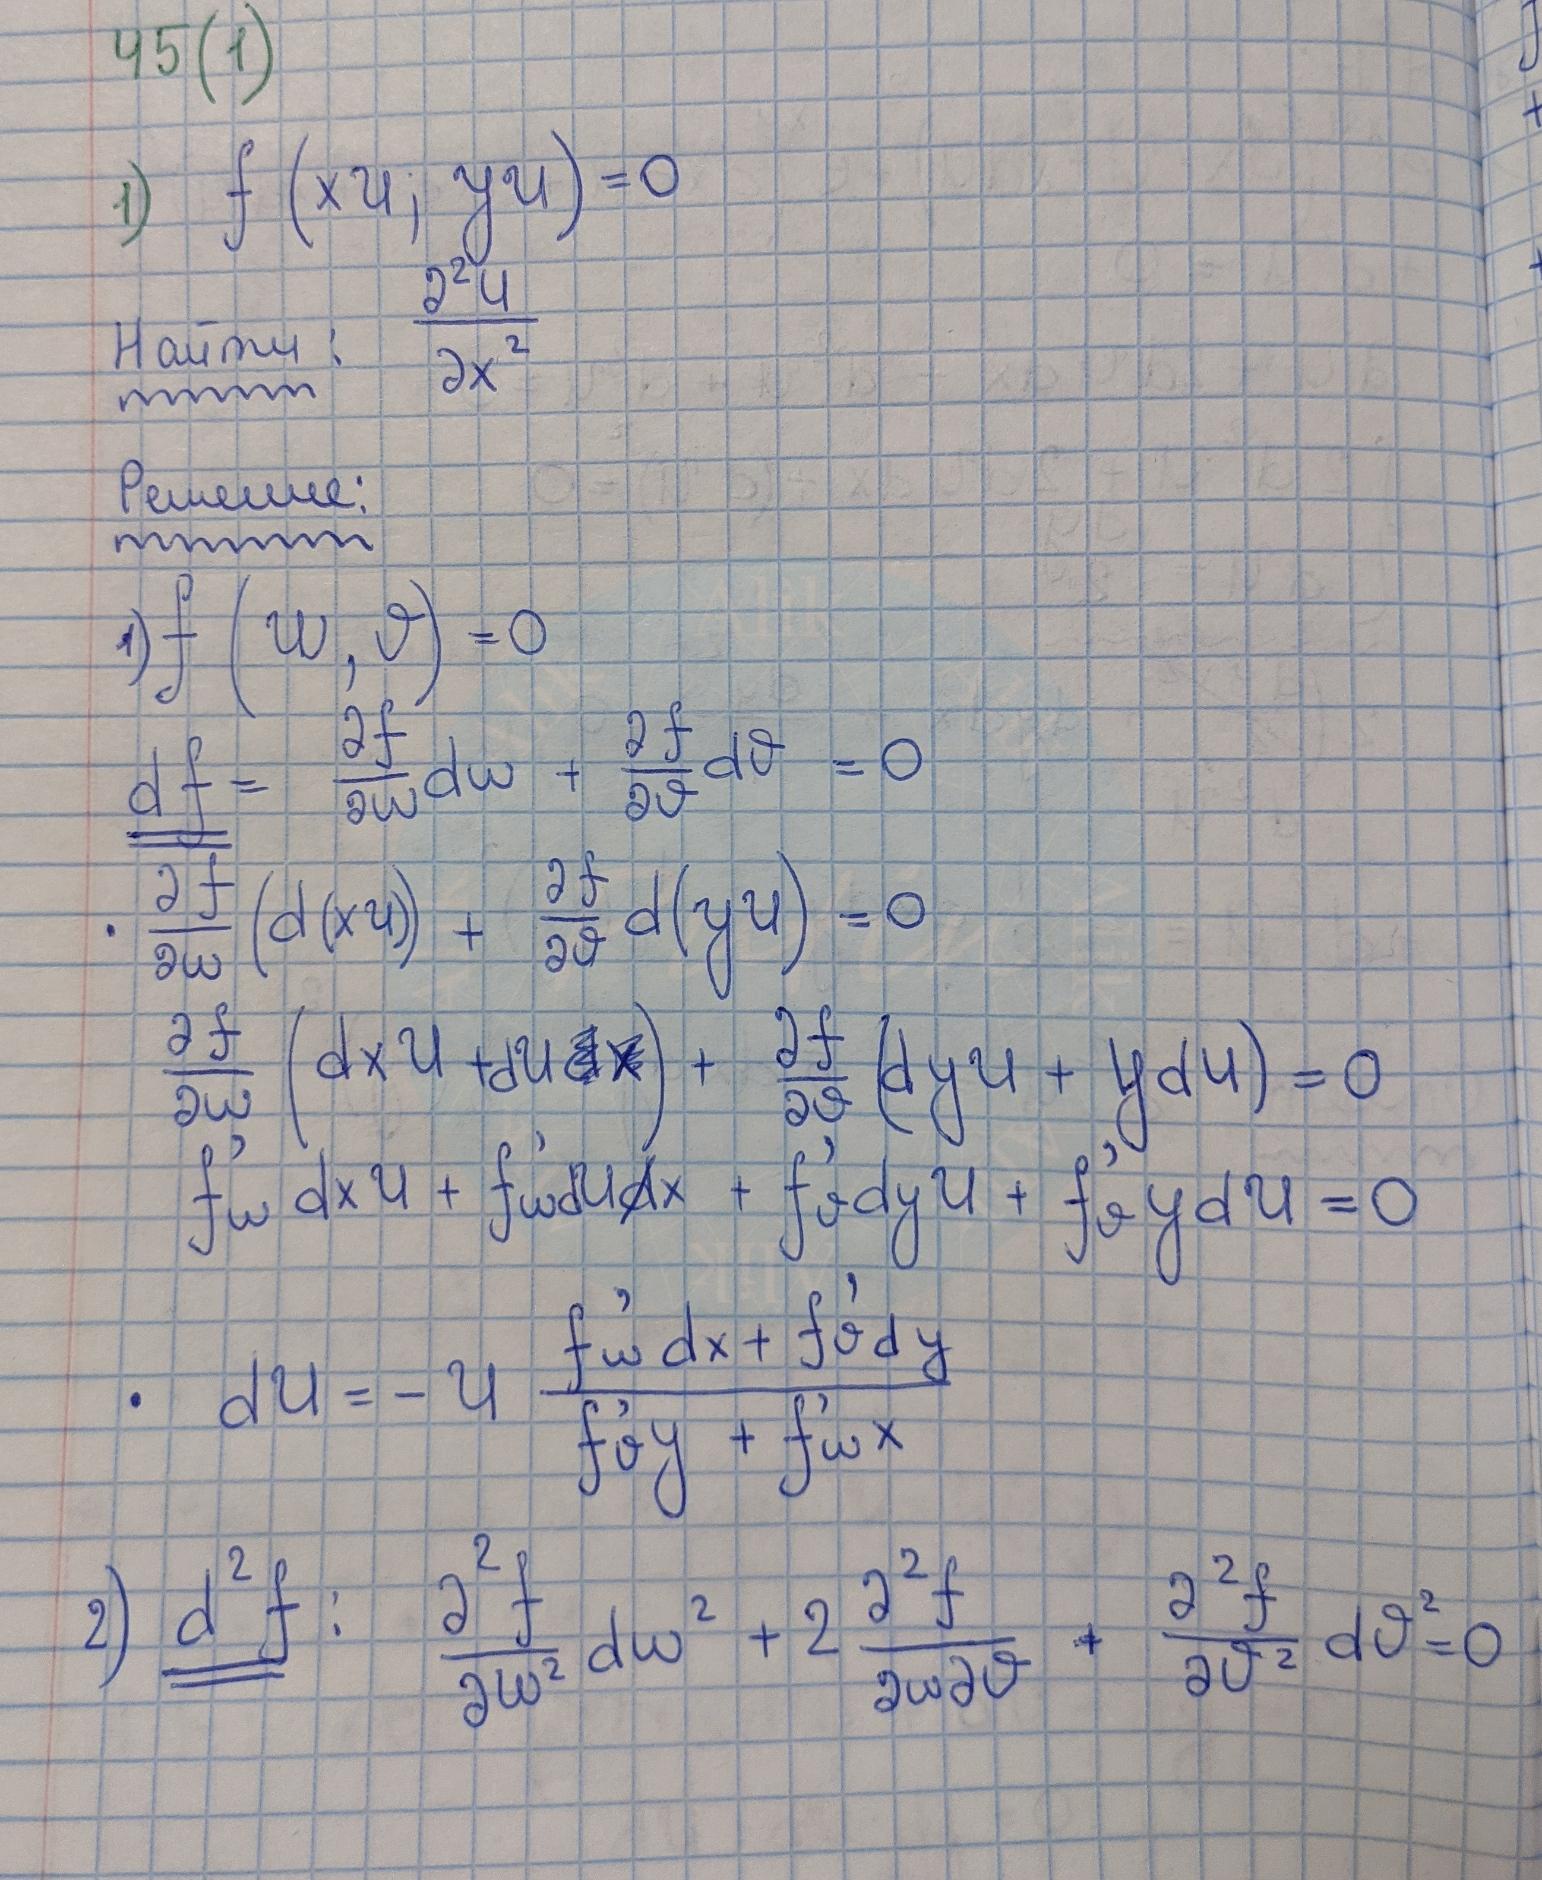 45(1)
1) f(xu; yu)=0
Найти: ∂²u/∂x²
Решение:
1) f(w, ϑ)=0
df = ∂f/∂w dw + ∂f/∂ϑ dϑ = 0
• ∂f/∂w (d(xu)) + ∂f/∂ϑ d(yu) = 0
∂f/∂w (dxu + du x) + ∂f/∂ϑ (dyu + ydu) = 0
f'w dxu + f'w du x + f'ϑ dyu + f'ϑ ydu = 0
• du = -u (f'w dx + f'ϑ dy)/(f'ϑ y + f'w x)
2) d²f: ∂²f/∂w² dw² + 2 ∂²f/∂w∂ϑ + ∂²f/∂ϑ² dϑ² = 0